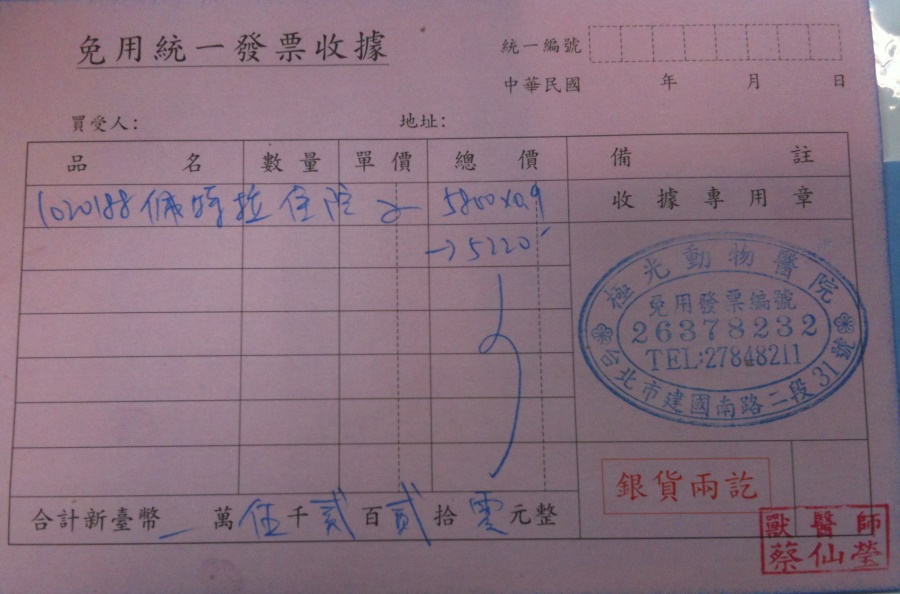 免用統一發票收據
統一編號
中華民國 年 月 日
買受人: 地址:
品名 數量 單價 總價 備註
1020188 佩特拉住院 5800x0.9
收據專用章
→5220
極光動物醫院
免用發票編號
26378232
TEL:27848211
台北市建國南路二段31號
銀貨兩訖
合計新臺幣 萬伍千貳百貳拾零元整
獸醫師
蔡仙瑩